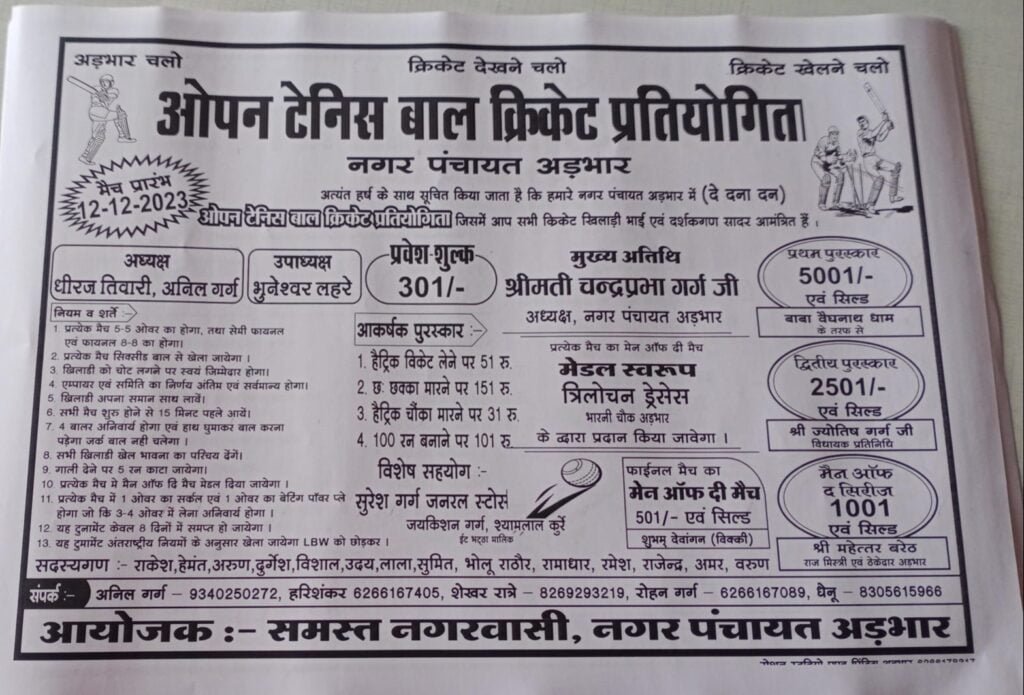 अड़भार चलो
क्रिकेट देखने चलो
क्रिकेट खेलने चलो
ओपन टेनिस बाल क्रिकेट प्रतियोगिता
नगर पंचायत अड़भार
मैच प्रारंभ
12-12-2023
अत्यंत हर्ष के साथ सूचित किया जाता है कि हमारे नगर पंचायत अड़भार में (दे दना दन)
ओपन टेनिस बाल क्रिकेट प्रतियोगिता जिसमें आप सभी क्रिकेट खिलाड़ी भाई एवं दर्शकगण सादर आमंत्रित हैं ।
अध्यक्ष
धीरज तिवारी, अनिल गर्ग
उपाध्यक्ष
भुनेश्वर लहरे
प्रवेश-शुल्क
301/-
मुख्य अतिथि
श्रीमती चन्द्रप्रभा गर्ग जी
अध्यक्ष, नगर पंचायत अड़भार
प्रथम पुरस्कार
5001/-
एवं सिल्ड
बाबा बैघनाथ धाम
के तरफ से
नियम व शर्ते :-
1. प्रत्येक मैच 5-5 ओवर का होगा, तथा सेमी फायनल
एवं फायनल 8-8 का होगा।
2. प्रत्येक मैच सिक्सीड बाल से खेला जायेगा ।
3. खिलाडी को चोट लगने पर स्वयं जिम्मेदार होगा।
4. एम्पायर एवं समिति का निर्णय अंतिम एवं सर्वमान्य होगा।
5. खिलाडी अपना समान साथ लावें।
6. सभी मैच शुरु होने से 15 मिनट पहले आयें।
7. 4 बालर अनिवार्य होगा एवं हाथ घुमाकर बाल करना
पड़ेगा जर्क बाल नही चलेगा ।
8. सभी खिलाडी खेल भावना का परिचय देंगें।
9. गाली देने पर 5 रन काटा जायेगा।
10. प्रत्येक मैच मे मैन ऑफ दि मैच मेडल दिया जायेगा।
11. प्रत्येक मैच में 1 ओवर का सर्कल एवं 1 ओवर का बेटिंग पॉवर प्ले
होगा जो कि 3-4 ओवर में लेना अनिवार्य होगा ।
12. यह टुनामेंट केवल 8 दिनों में समप्त हो जायेगा ।
13. यह टुमामेंट अंतराष्ट्रीय नियमों के अनुसार खेला जायेगा LBW को छोड़कर ।
आकर्षक पुरस्कार :-
1. हैट्रिक विकेट लेने पर 51 रु.
2. छः छक्का मारने पर 151 रु.
3. हैट्रिक चौंका मारने पर 31 रु.
4. 100 रन बनाने पर 101 रु.
प्रत्येक मैच का मेन ऑफ दी मैच
मेडल स्वरूप
त्रिलोचन ड्रेसेस
भारनी चौक अड़भार
के द्वारा प्रदान किया जावेगा ।
द्वितीय पुरस्कार
2501/-
एवं सिल्ड
श्री ज्योतिष गर्ग जी
विधायक प्रतिनिधि
विशेष सहयोग :-
सुरेश गर्ग जनरल स्टोर्स
जयकिशन गर्ग, श्यामलाल कुर्रे
ईट भट्ठा मालिक
फाईनल मैच का
मेन ऑफ दी मैच
501/- एवं सिल्ड
शुभम् देवांगन (विक्की)
मैन ऑफ
द सिरीज
1001
एवं सिल्ड
श्री महेत्तर बरेठ
राज मिस्त्री एवं ठेकेदार अड़भार
सदस्यगण :- राकेश,हेमंत,अरुण,दुर्गेश,विशाल,उदय,लाला,सुमित, भोलू राठौर, रामाधार, रमेश, राजेन्द्र, अमर, वरुण
संपर्क :- अनिल गर्ग – 9340250272, हरिशंकर 6266167405, शेखर रात्रे – 8269293219, रोहन गर्ग – 6266167089, धैनू – 8305615966
आयोजक :- समस्त नगरवासी, नगर पंचायत अड़भार